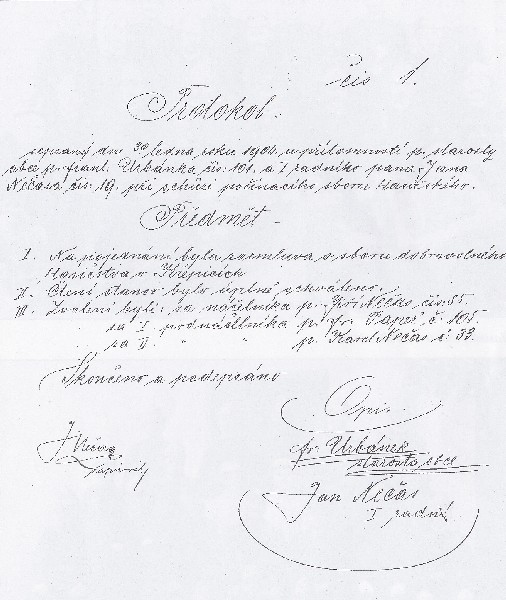 čís 1.
Protokol.
sepsaný dne 3ho ledna roku 1904 u přítomnosti p. starosty
obce p. frant. Urbánka čís. 101. a I radního pana Jana
Nečasa čís. 19. při schůzi počínacího sboru Hasičského.
Předmět
I. Na pojednání byla rozmluva o sboru dobrovolného
Hasičstva v
II. Čtení stanov bylo úplně schváleno.
III. Zvoleni byli: za náčelníka p. čís. 55.
za I. podnáčelníka p. fr. č. 105.
za II. " " p. Karel Nečas č. 39.
Skončeno a podepsáno
Opis.
J Nečas
fr. Urbánek
starosta obce
Jan Nečas
I radní